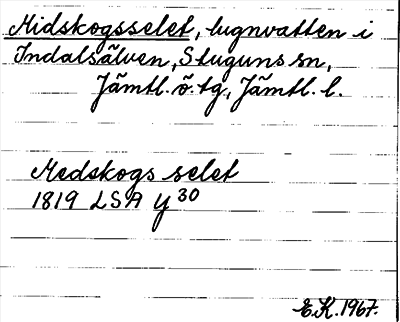 Midskogsselet, lugnvatten i
Indalsälven, Stuguns sn,
Jämtl. ö. tg, Jämtl. l.
Medskogs selet
1819 LSA Y 30
E.K. 1967.